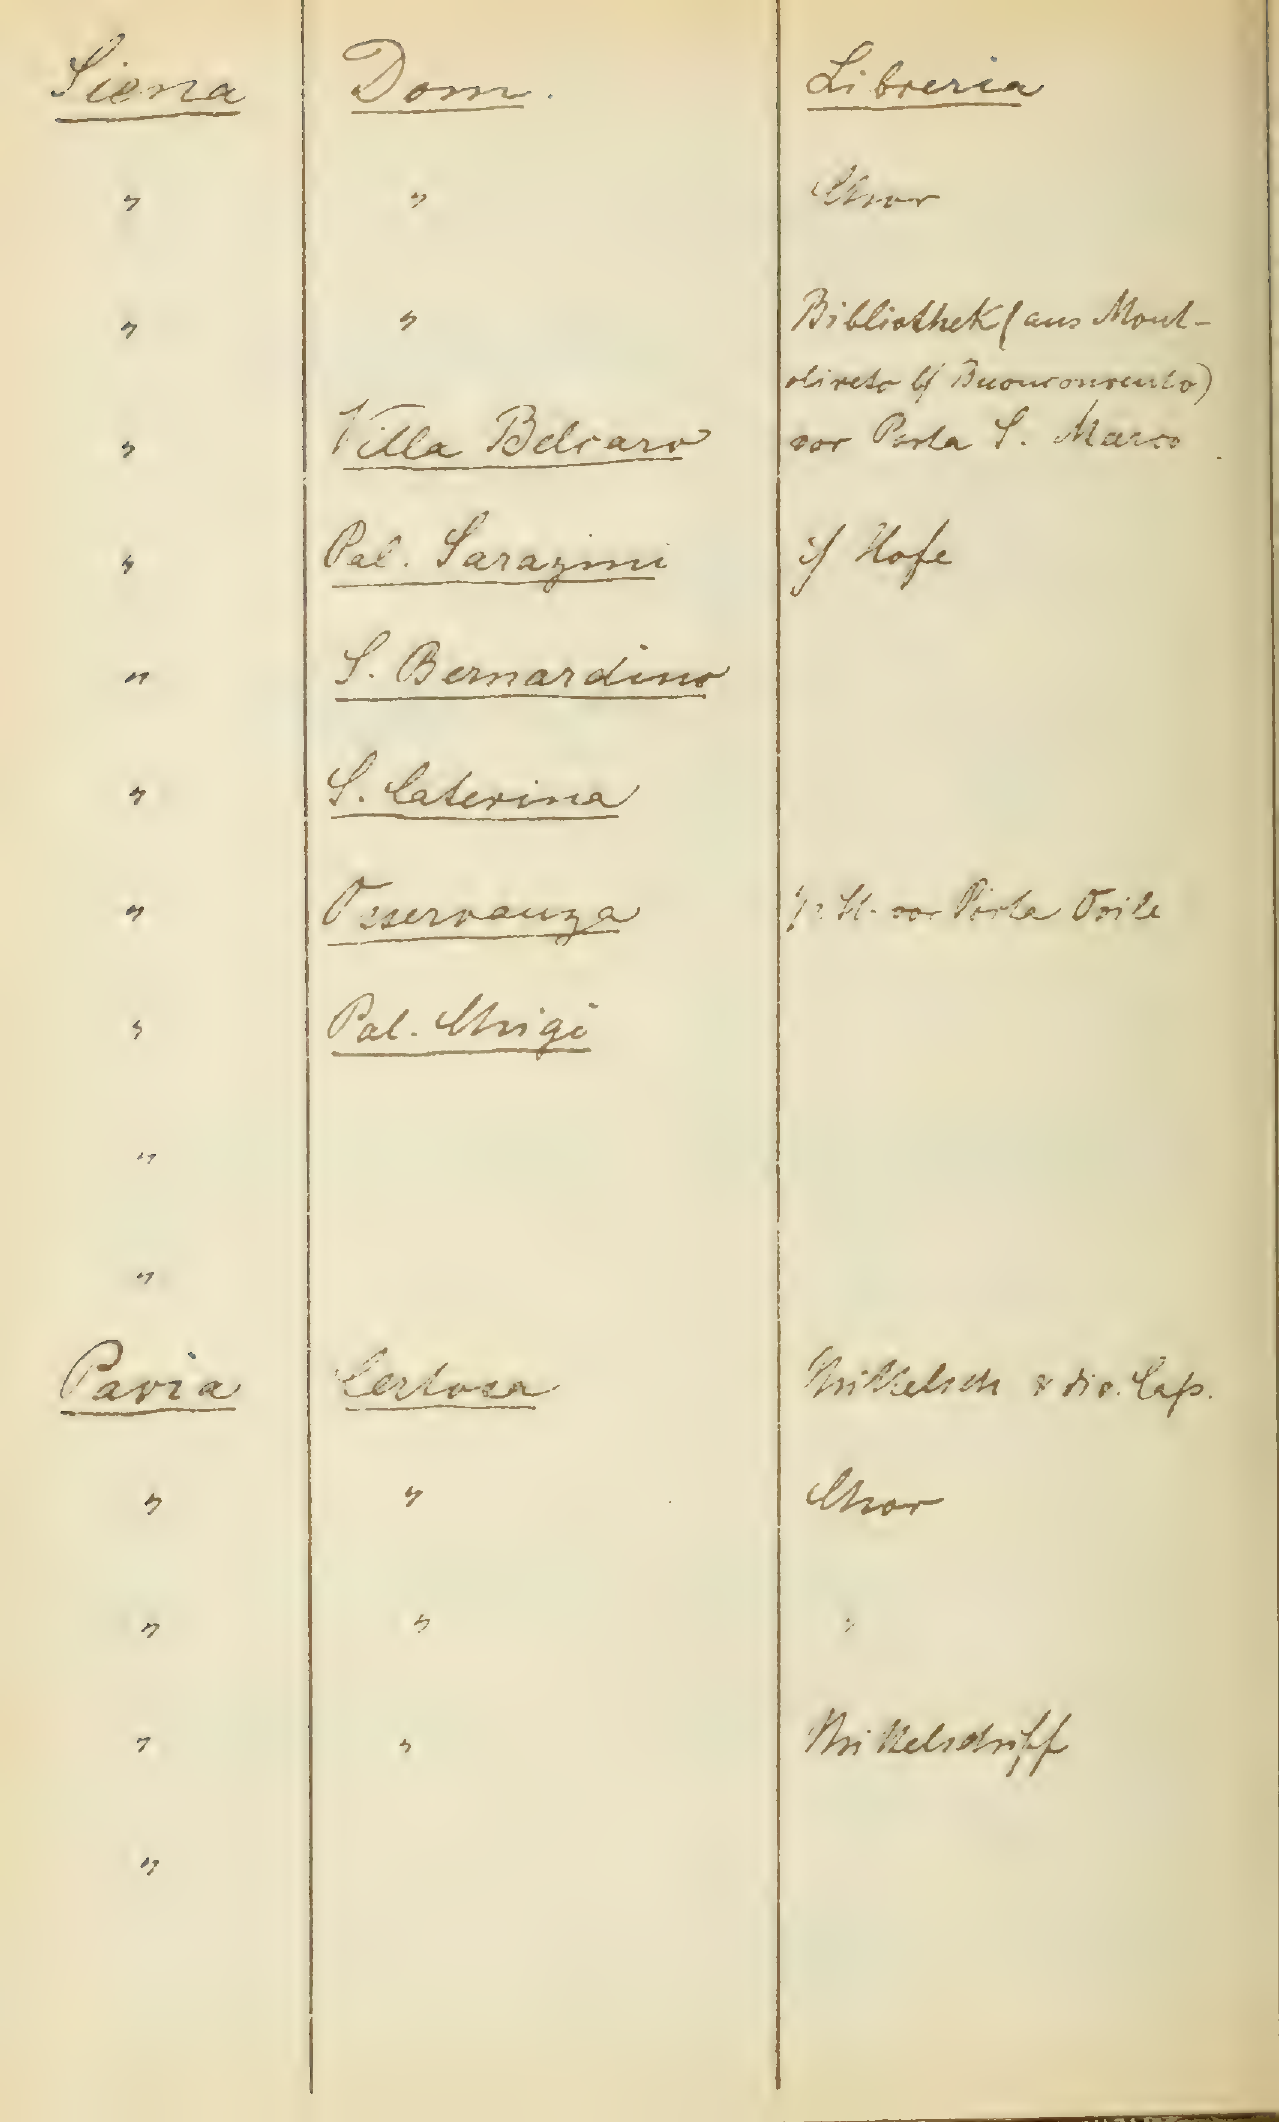 Siena Dom. Libreria
" " Chor
" " Bibliothek (aus Mont-
oliveto b/ Buonconvento)
" Villa Belcaro vor Porta S. Marco
" Pal. Sarazini i/ Hofe
" S. Bernardino
" S. Caterina
" Osservanza St. vor Porta Ovile
" Pal. Chigi
"
"
Pavia Certosa Mittelsch & div. Cap.
" " Chor
" " "
" " Mittelschiff
"